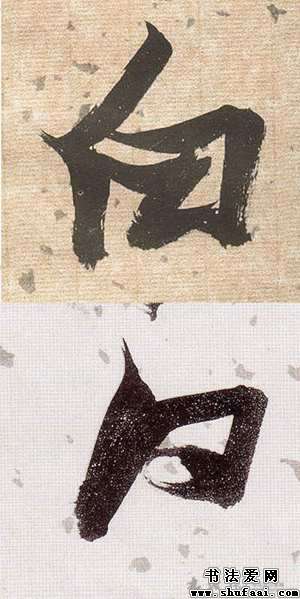 白
白
书法爱网
www.shufaai.com